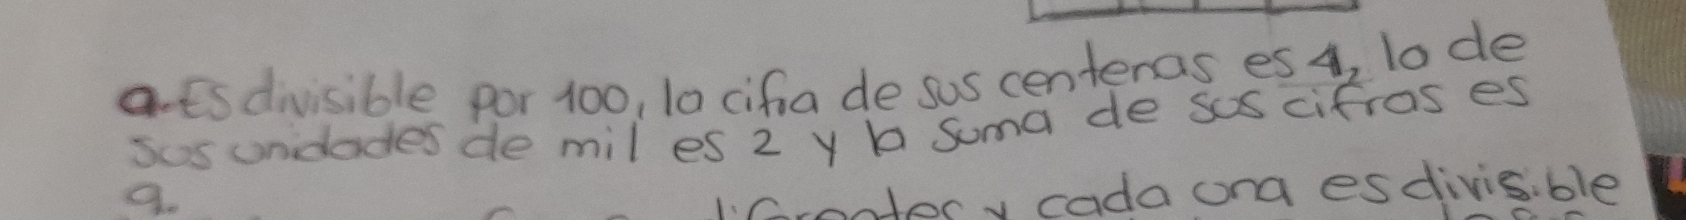 a. Es divisible por 100, la cifra de sus centenas es 4, la de
sus unidades de mil es 2 y la suma de sus cifras es
9.
y cada una es divisible